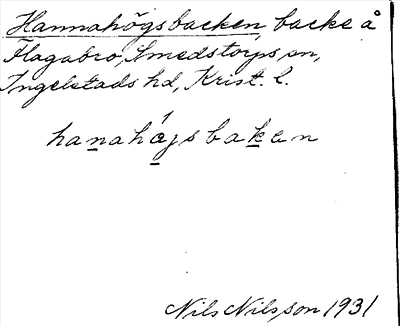 Hannahögsbacken, backe å
Hagabro, Smedstorps sn,
Ingelstads hd, Krist. l.
hanahajsbaken
Nils Nilsson 1931